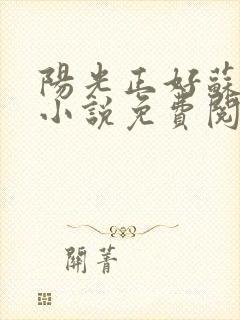 陽光正好蘇
小說免費閱
關菁